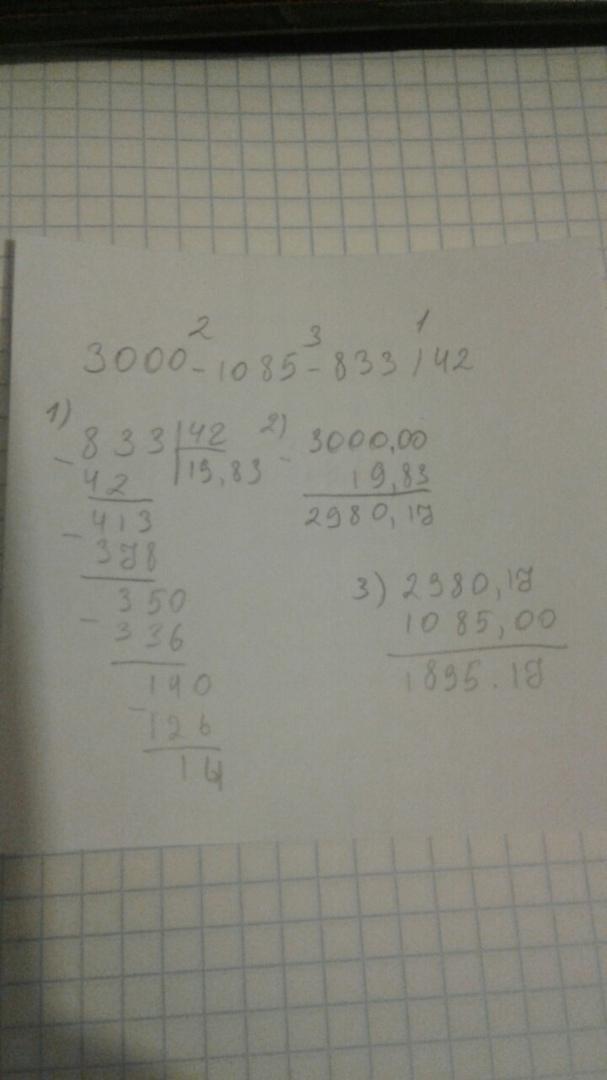 2 3 1
3000-1085-833/42
1)
- 833 | 42
42 | 19,83
- 413
378
- 350
336
- 140
126
14
2)
- 3000,00
19,83
2980,17
3) 2980,17
1085,00
1895.17